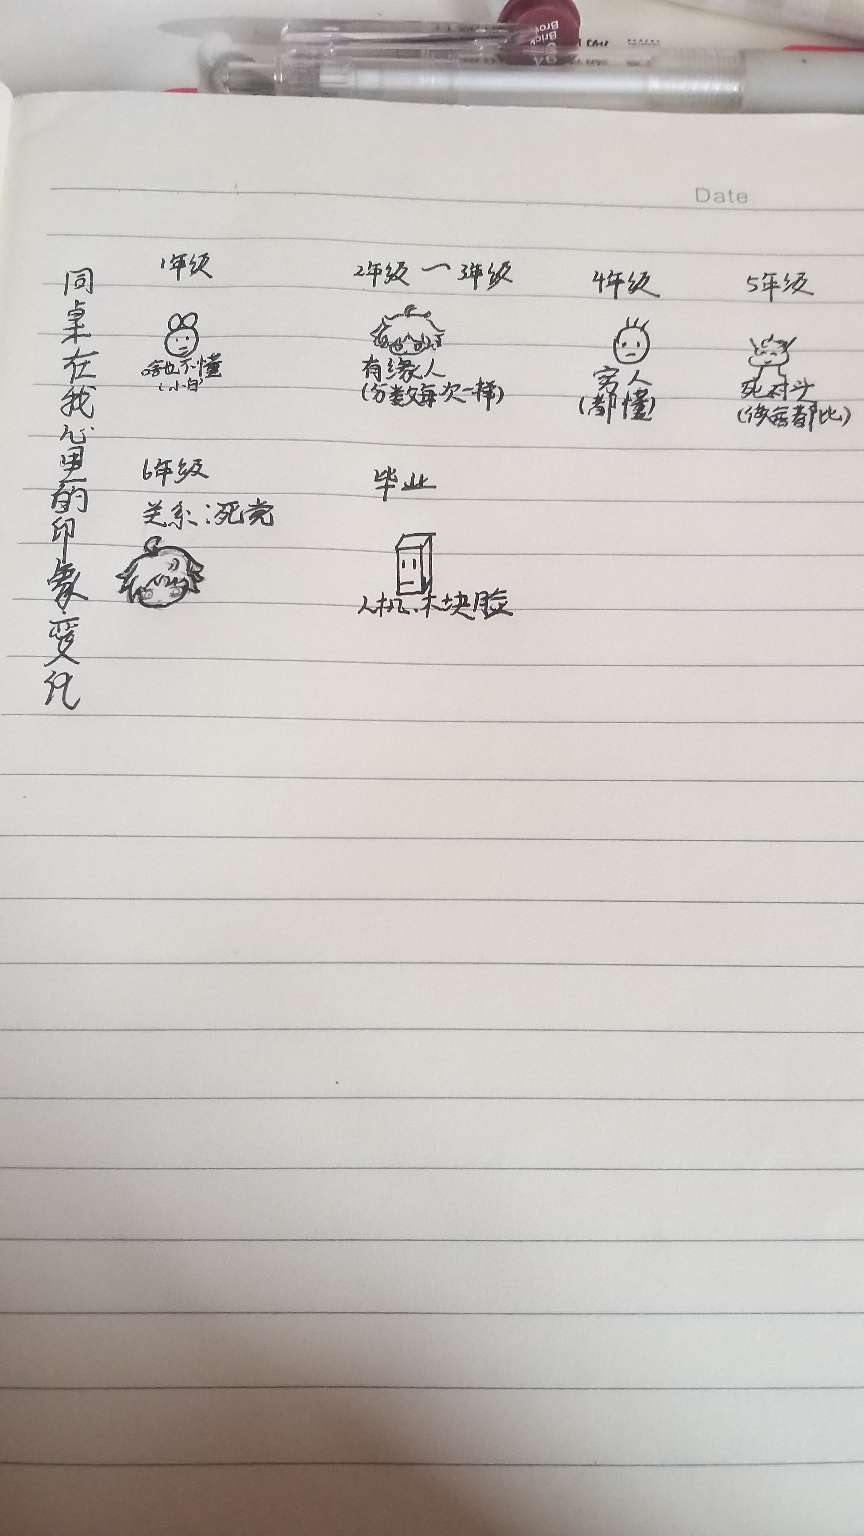 Date
同桌在我心里的印象变化
1年级
啥也不懂
(小白)
2年级一3年级
有缘人
(分数每次一样)
4年级
穷人
(都懂)
5年级
死对头
(啥都比)
6年级
关系:死党
毕业
人机.木块脸